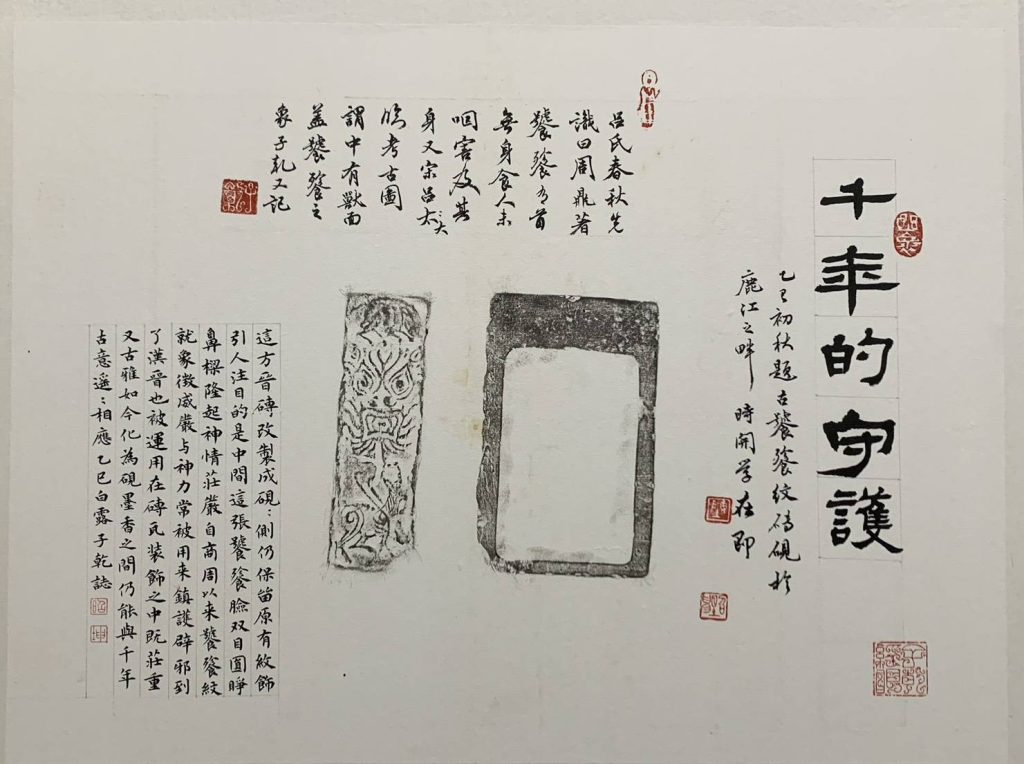 千年的守護
乙巳初秋題古饕餮紋磚硯於
鹿江之畔 時開学在即
呂氏春秋先
識曰周鼎著
饕餮有首
無身食人未
咽害及其
身又宗呂大
臨考古圖
謂中有獸面
蓋饕餮之
象子乾又記
這方晉磚改製成硯：側仍保留原有紋飾
引人注目的是中間這張饕餮臉双目圓睜
鼻樑隆起神情莊嚴自商周以来饕餮紋
就象徵威嚴与神力常被用来鎮護辟邪到
了漢晉也被運用在磚瓦装飾之中既莊重
又古雅如今化為硯墨香之間仍能與千年
古意遥：相應乙巳白露子乾誌